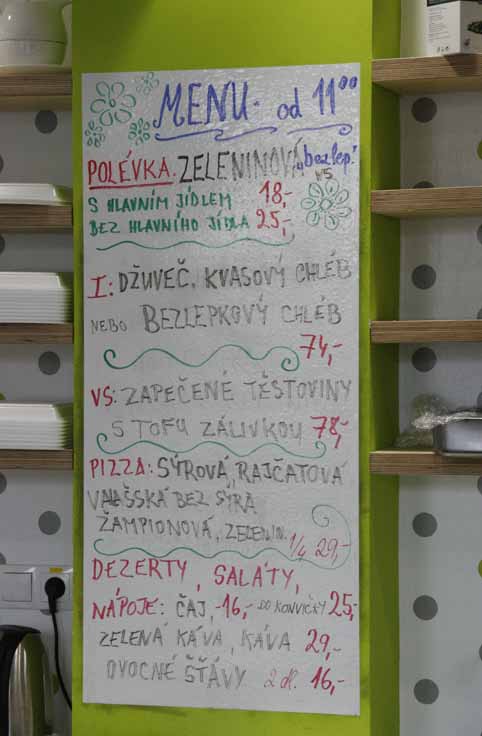 MENU· od 11⁰⁰
POLÉVKA. ZELENINOVÁ „bezlep."
VS
S HLAVNÍM JÍDLEM 18,-
BEZ HLAVNÍHO JÍDLA 25,-
I: DŽUVEČ, KVASOVÝ CHLÉB
NEBO BEZLEPKOVÝ CHLÉB
74,-
VS: ZAPEČENÉ TĚSTOVINY
S TOFU ZÁLIVKOU 78,-
PIZZA: SÝROVÁ, RAJČATOVÁ
VALAŠSKÁ BEZ SÝRA
ŽAMPIONOVÁ, ZELENIN. 1/4 29,-
DEZERTY, SALÁTY,
NÁPOJE: ČAJ, -16,- DO KONVIČKY 25,-
ZELENÁ KÁVA, KÁVA 29,-
OVOCNÉ ŠŤÁVY 2 dl. 16,-